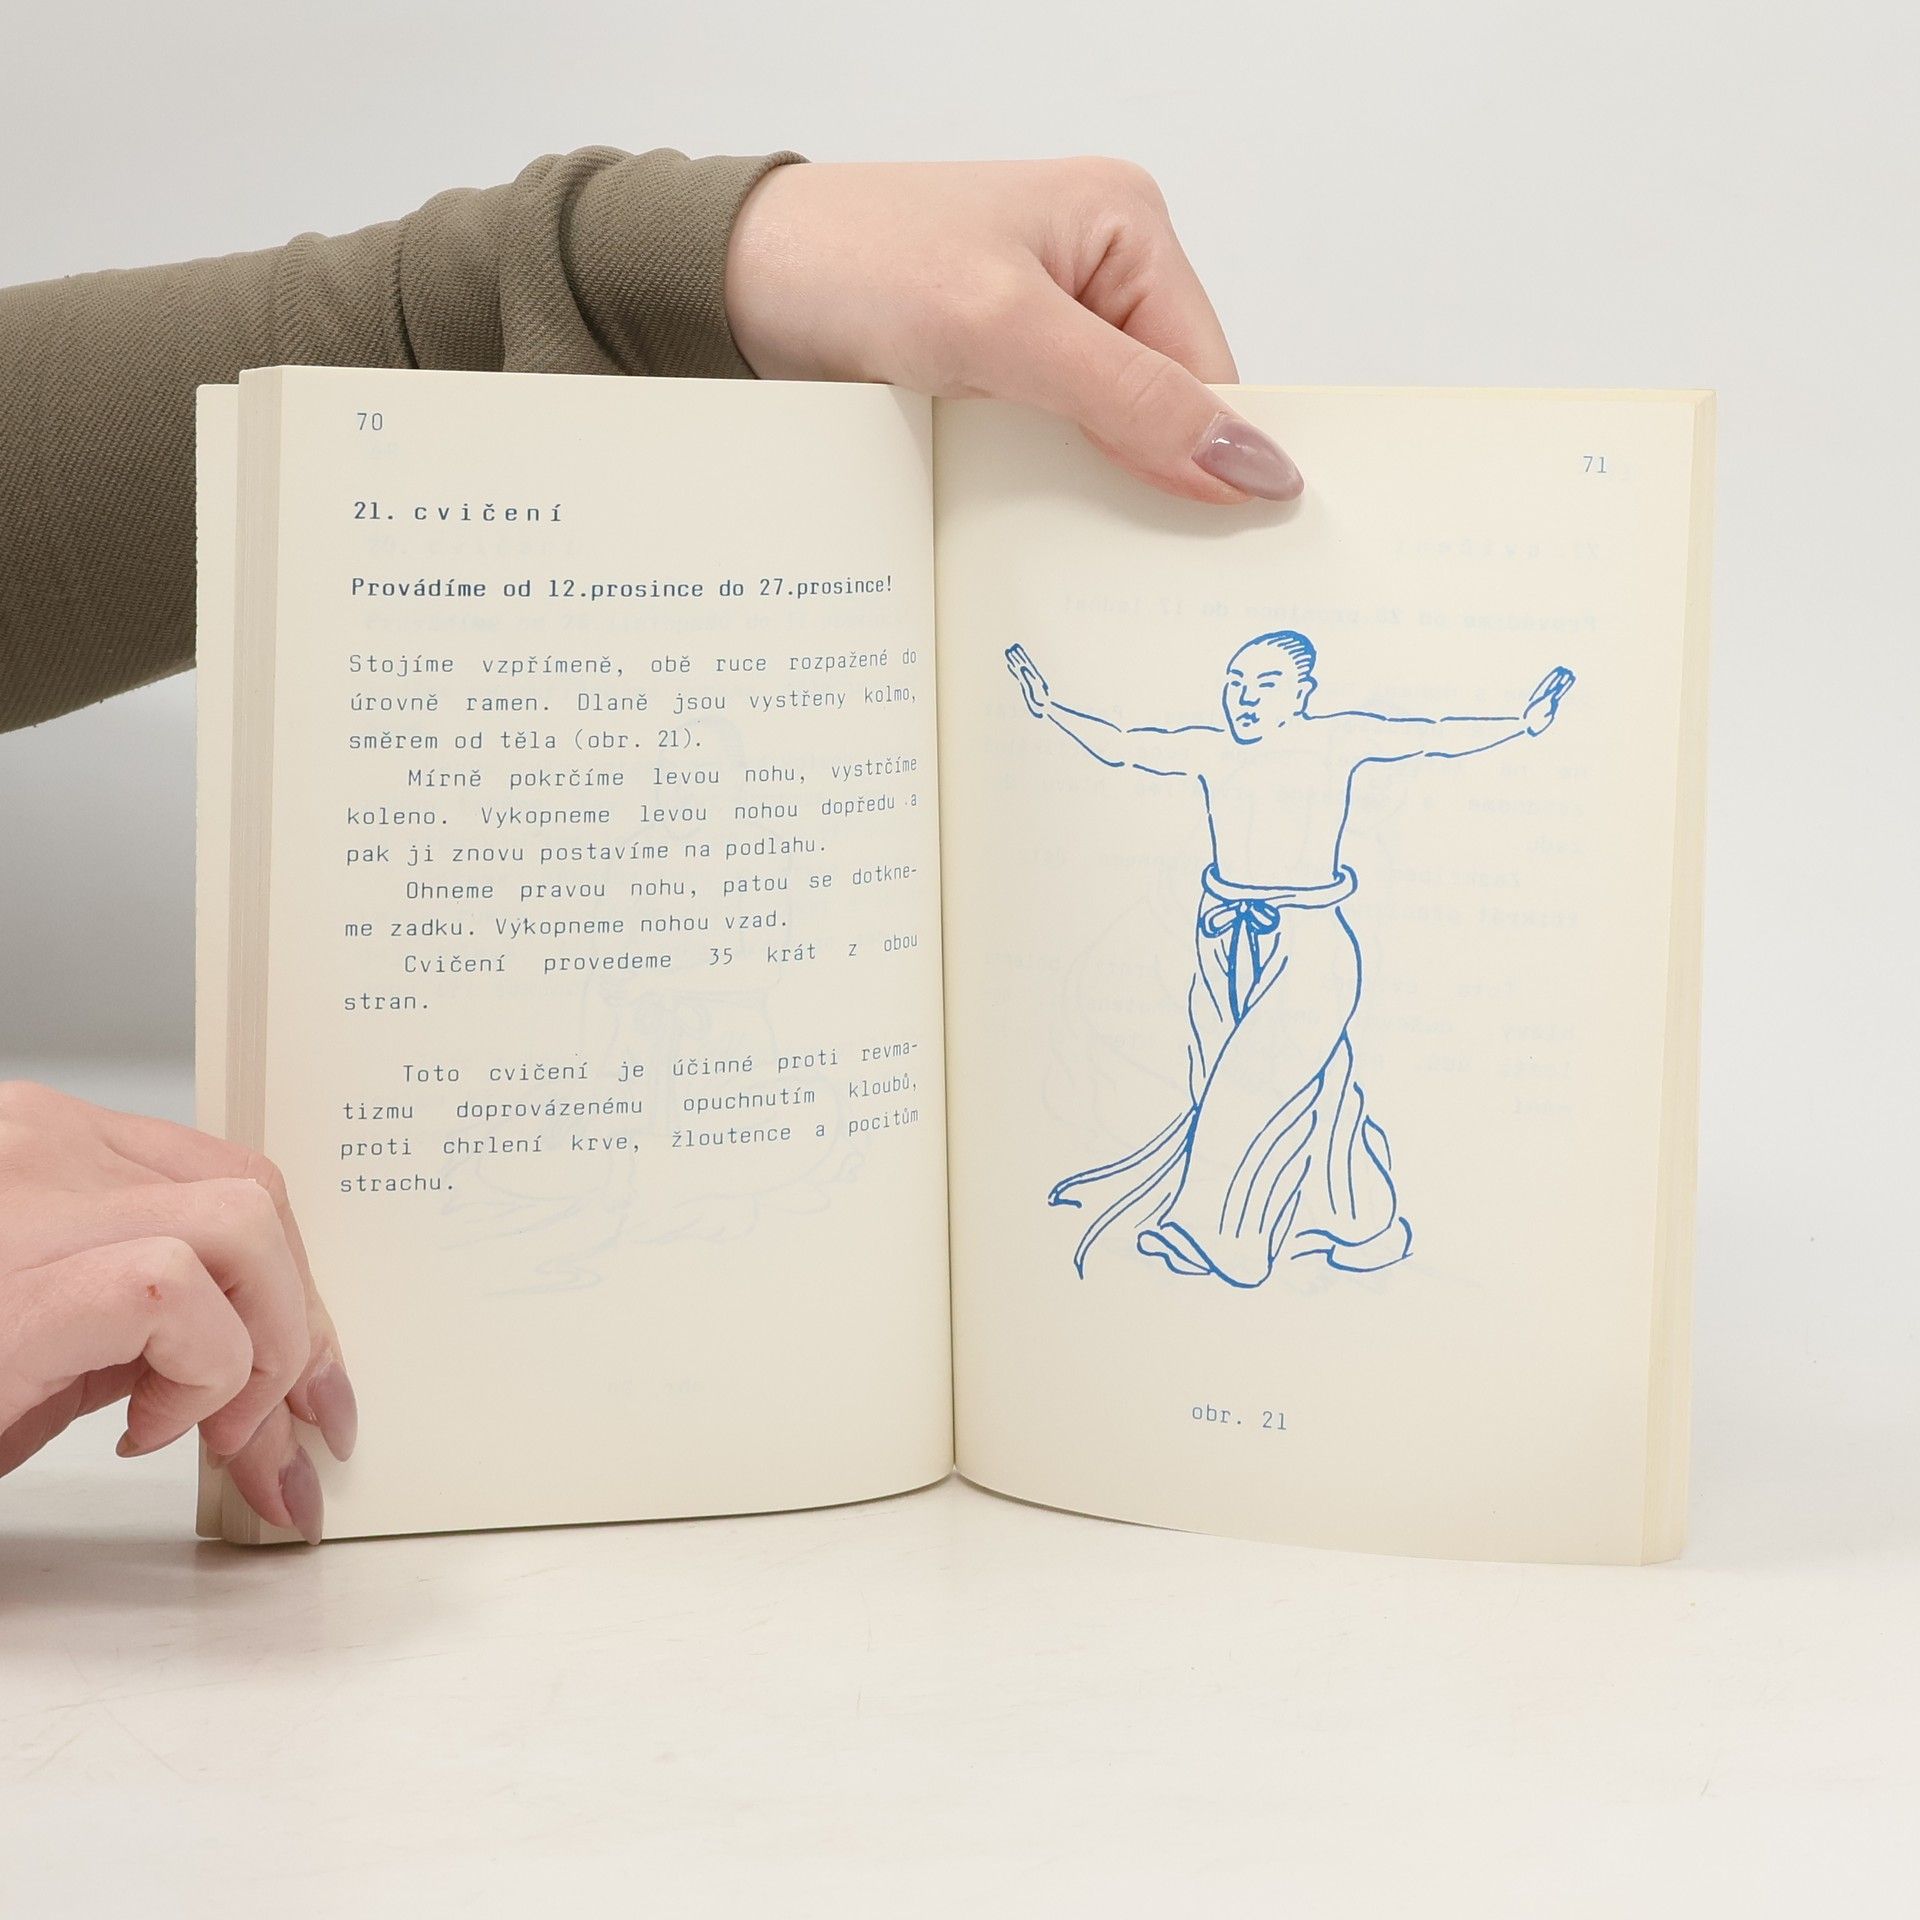 70
21. cvičení
Provádíme od 12.prosince do 27.prosince!
Stojíme vzpřímeně, obě ruce rozpažené do
úrovně ramen. Dlaně jsou vystřeny kolmo,
směrem od těla (obr. 21).
Mírně pokrčíme levou nohu, vystrčíme
koleno. Vykopneme levou nohou dopředu a
pak ji znovu postavíme na podlahu.
Ohneme pravou nohu, patou se dotkne-
me zadku. Vykopneme nohou vzad.
Cvičení provedeme 35 krát z obou
stran.
Toto cvičení je účinné proti revma-
tizmu doprovázenému opuchnutím kloubů,
proti chrlení krve, žloutence a pocitům
strachu.
71
obr. 21